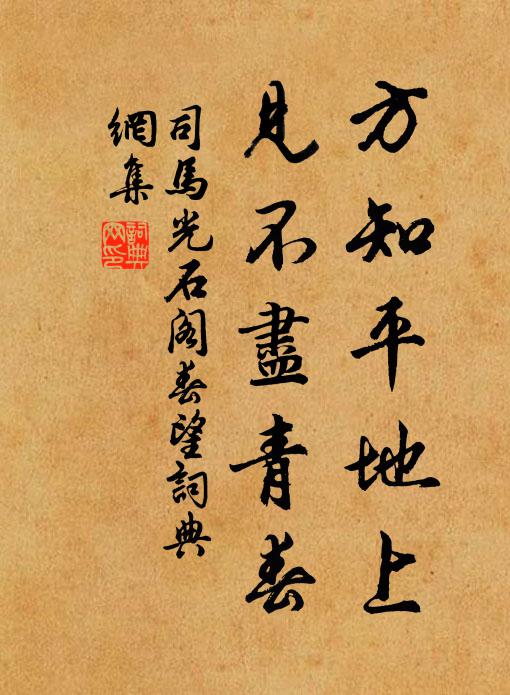 方知平地上
見不盡青春
司馬光石阁春望詞典
網集
詞典網印